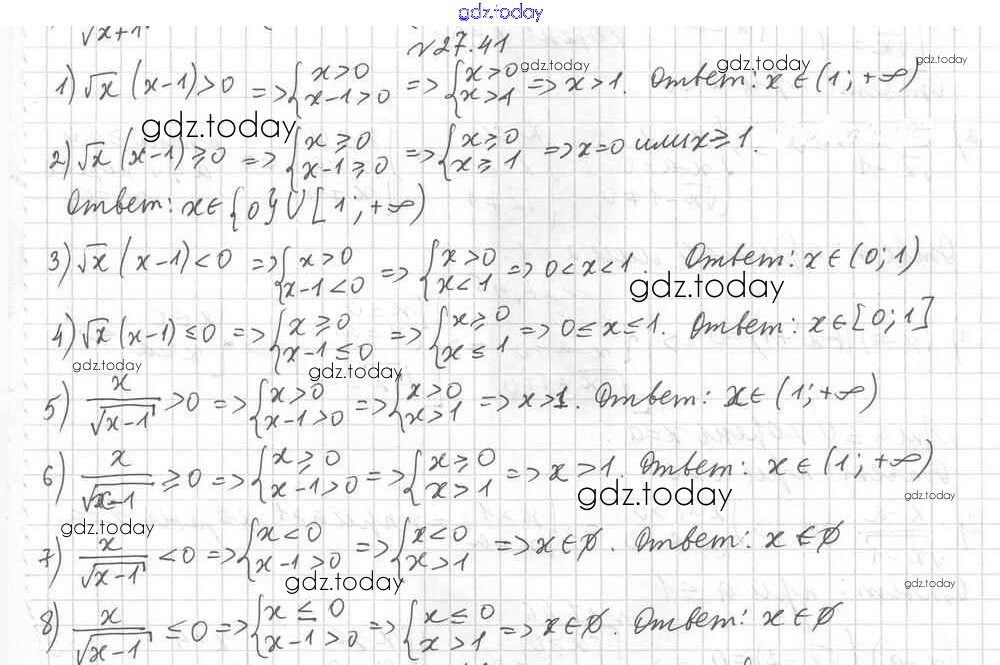 gdz.today
√x+1
№27.41
1) √x (x-1)>0 => {x>0 x-1>0 => {x>0 x>1 => x>1. Ответ: x∈(1;+∞)
gdz.today gdz.today gdz.today
gdz.today
2) √x (x-1)⩾0 => {x⩾0 x-1⩾0 => {x⩾0 x⩾1 => x=0 или x⩾1.
Ответ: x∈{0}∪[1;+∞)
3) √x (x-1)<0 => {x>0 x-1<0 => {x>0 x<1 => 0<x<1. Ответ: x∈(0;1)
gdz.today
4) √x (x-1)≤0 => {x⩾0 x-1≤0 => {x⩾0 x≤1 => 0≤x≤1. Ответ: x∈[0;1]
gdz.today gdz.today
5) x/√x-1 >0 => {x>0 x-1>0 => {x>0 x>1 => x>1. Ответ: x∈(1;+∞)
6) x/√x-1 ⩾0 => {x⩾0 x-1>0 => {x⩾0 x>1 => x>1. Ответ: x∈(1;+∞)
gdz.today gdz.today
gdz.today
7) x/√x-1 <0 => {x<0 x-1>0 => {x<0 x>1 => x∈∅. Ответ: x∈∅
gdz.today gdz.today
8) x/√x-1 ≤0 => {x≤0 x-1>0 => {x≤0 x>1 => x∈∅. Ответ: x∈∅